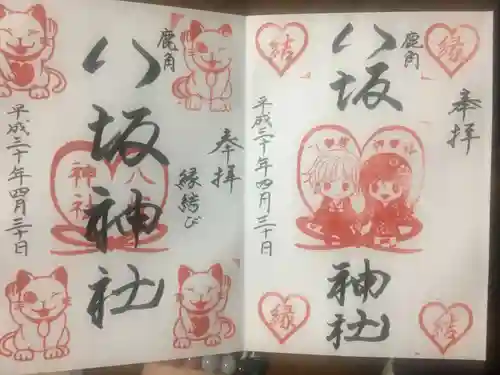 奉拝
縁結び
鹿角
八坂神社
八
神社
平成三十年四月三十日
縁
奉拝
結
鹿角
八坂
神社
結
縁
平成三十年四月三十日